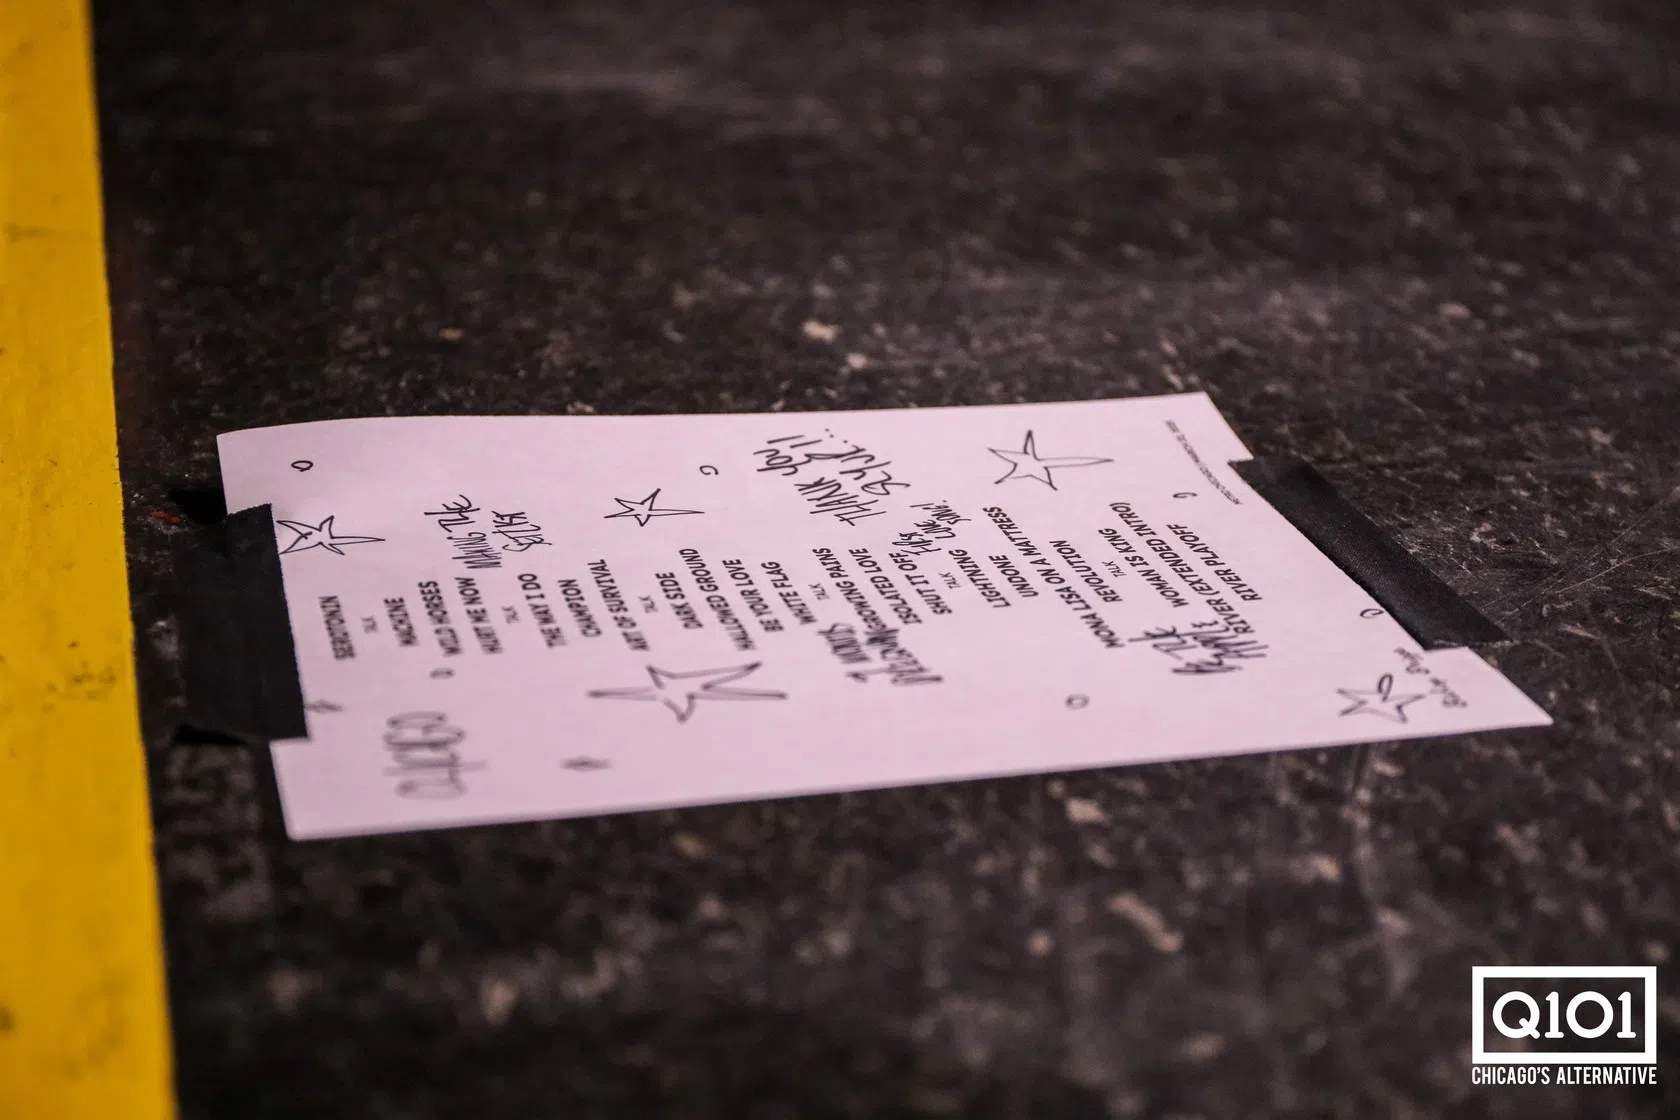 SEROTONIN
TALK
MACHINE
WILD HORSES
HURT ME NOW
TALK
THE WAY I DO
CHAMPION
ART OF SURVIVAL
TALK
DARK SIDE
HALLOWED GROUND
BE YOUR LOVE
WHITE FLAG
TALK
GROWING PAINS
ISOLATED LOVE
SHUT IT OFF
TALK
LIGHTNING
UNDONE
MONA LISA ON A MATTRESS
REVOLUTION
TALK
WOMAN IS KING
RIVER (EXTENDED INTRO)
RIVER PLAYOFF
MAKING THE
SETLIST
THANK YOU!!
Q101
CHICAGO'S ALTERNATIVE